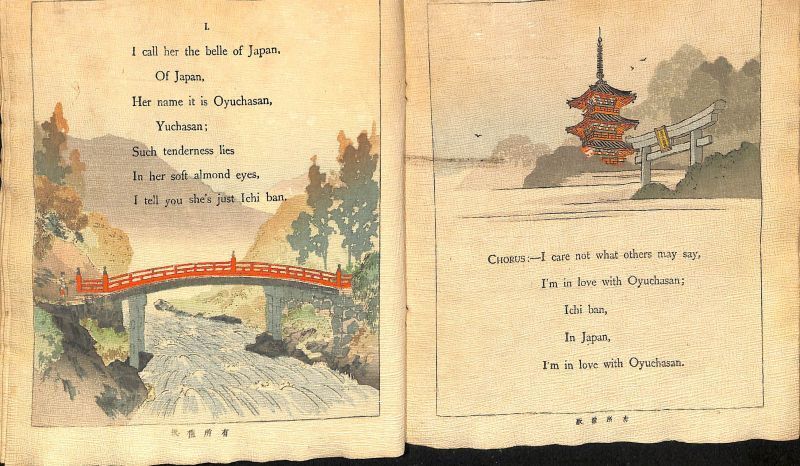 I.
I call her the belle of Japan,
Of Japan,
Her name it is Oyuchasan,
Yuchasan;
Such tenderness lies
In her soft almond eyes,
I tell you she's just Ichi ban.
版權所有
CHORUS:—I care not what others may say,
I'm in love with Oyuchasan;
Ichi ban,
In Japan,
I'm in love with Oyuchasan.
版權所有